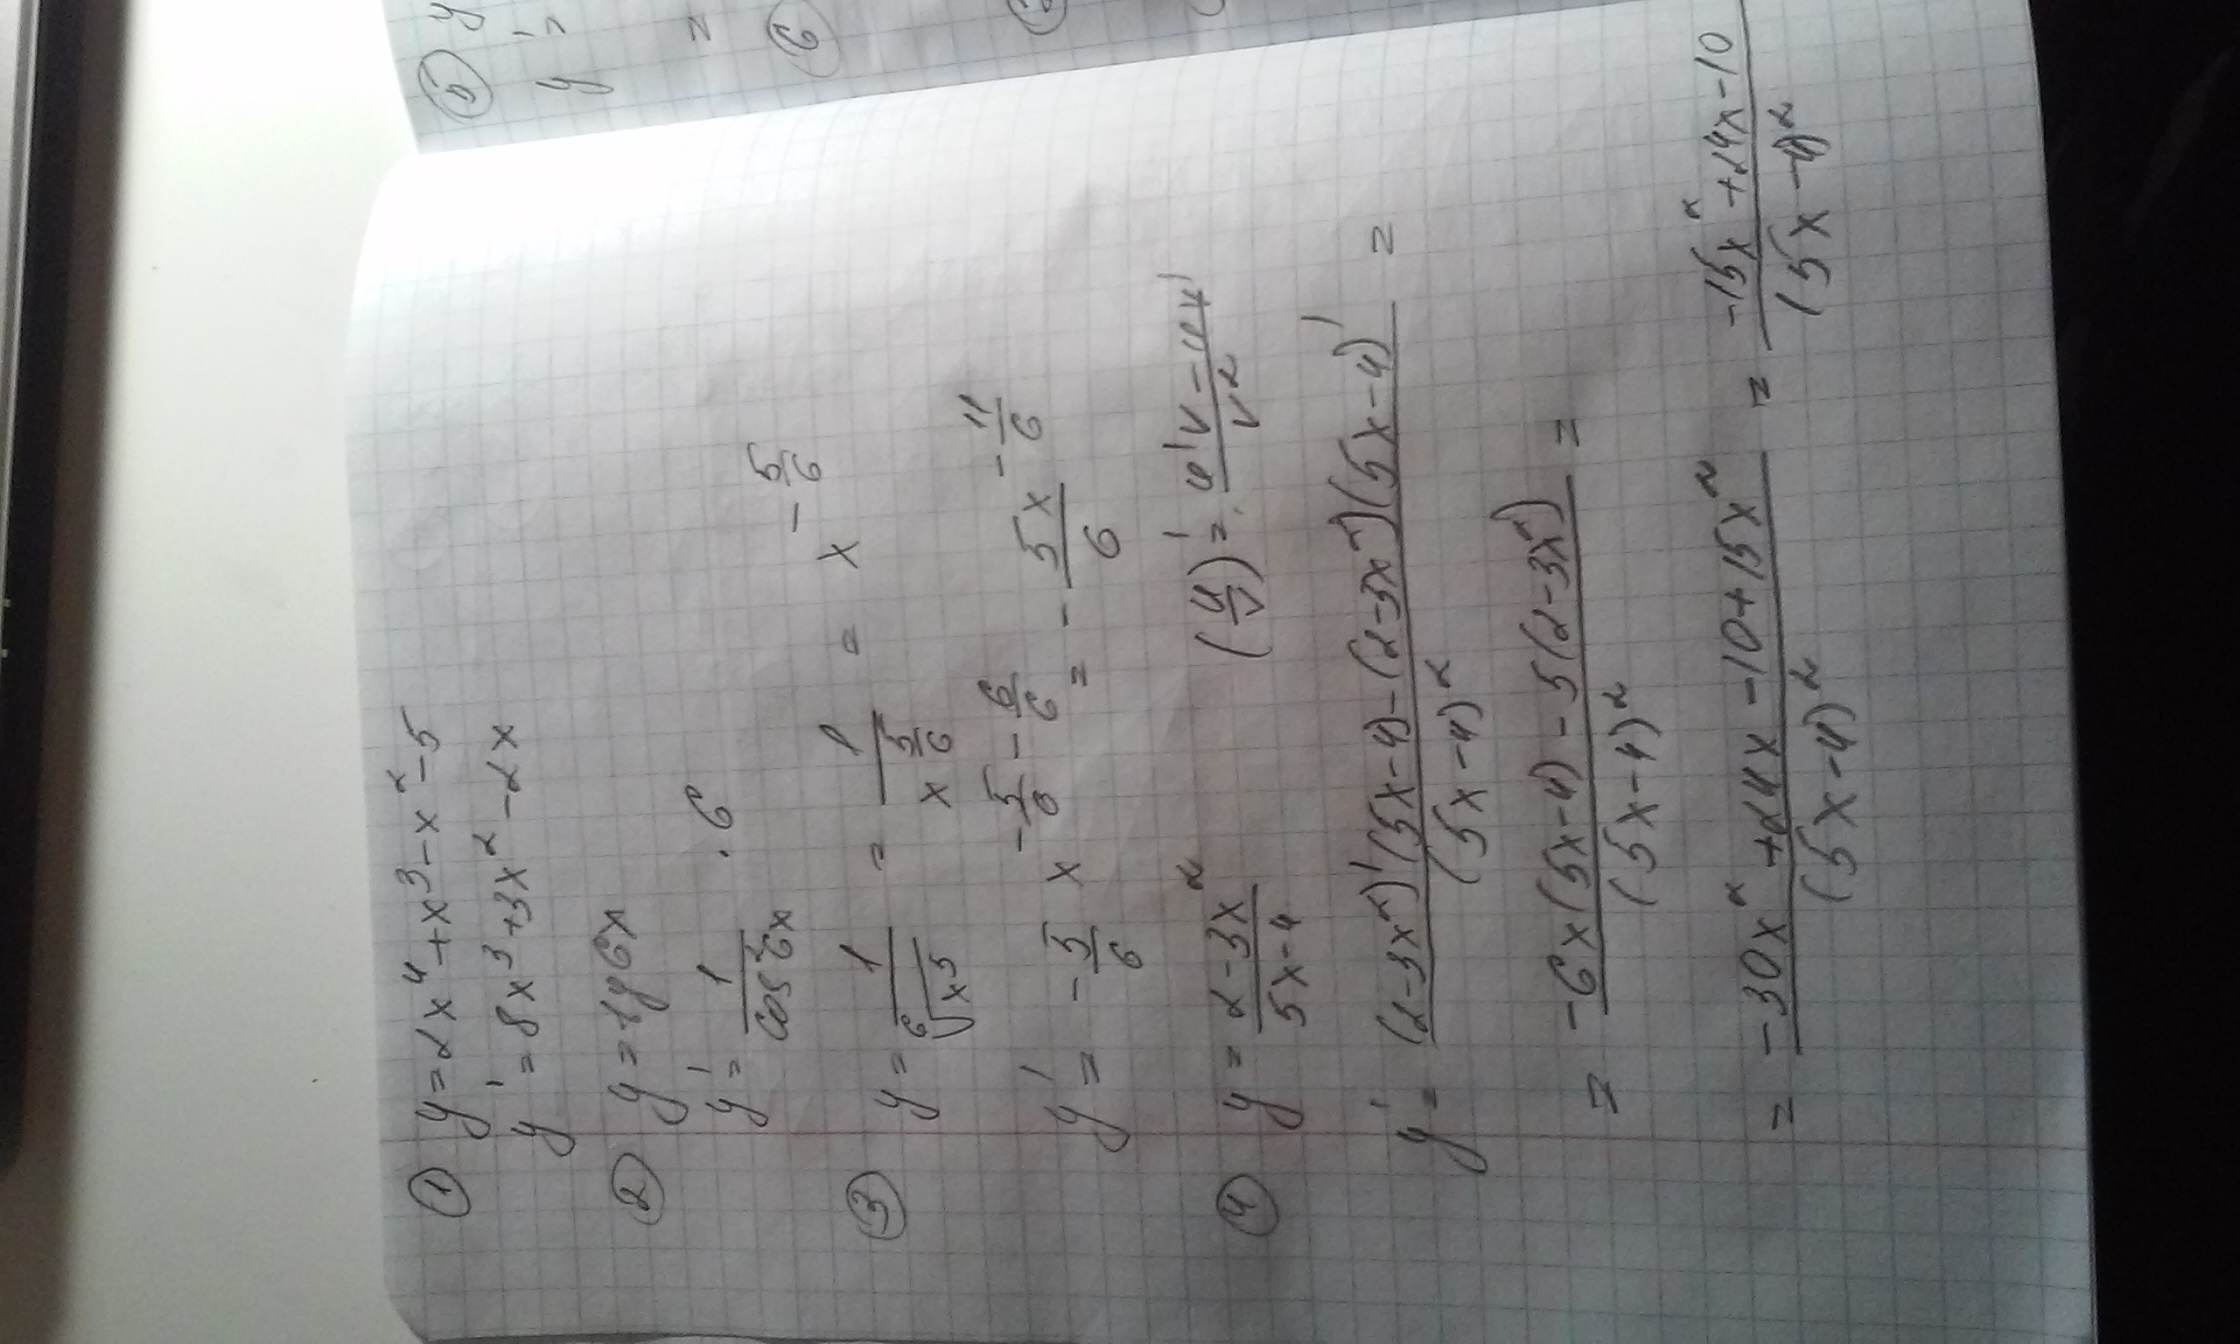 ① y = 2x⁴ + x³ - x² - 5
y' = 8x³ + 3x² - 2x
② y = tg6x
y' = 1/cos²6x · 6
③ y = 1/⁶√x⁵ = 1/x^(5/6) = x^(-5/6)
y' = -5/6 x^(-5/6 - 6/6) = - 5x^(-11/6)/6
④ y = (2-3x²)/(5x-4) (u/v)' = (u'v - uv')/v²
y' = ((2-3x²)'(5x-4) - (2-3x²)(5x-4)')/(5x-4)² =
= (-6x(5x-4) - 5(2-3x²))/(5x-4)² =
= (-30x² + 24x - 10 + 15x²)/(5x-4)² = (-15x² + 24x - 10)/(5x-4)²
⑤ y
y' =
=
⑥